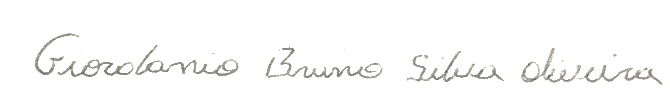 Giordanio Bruno Silva Oliveira